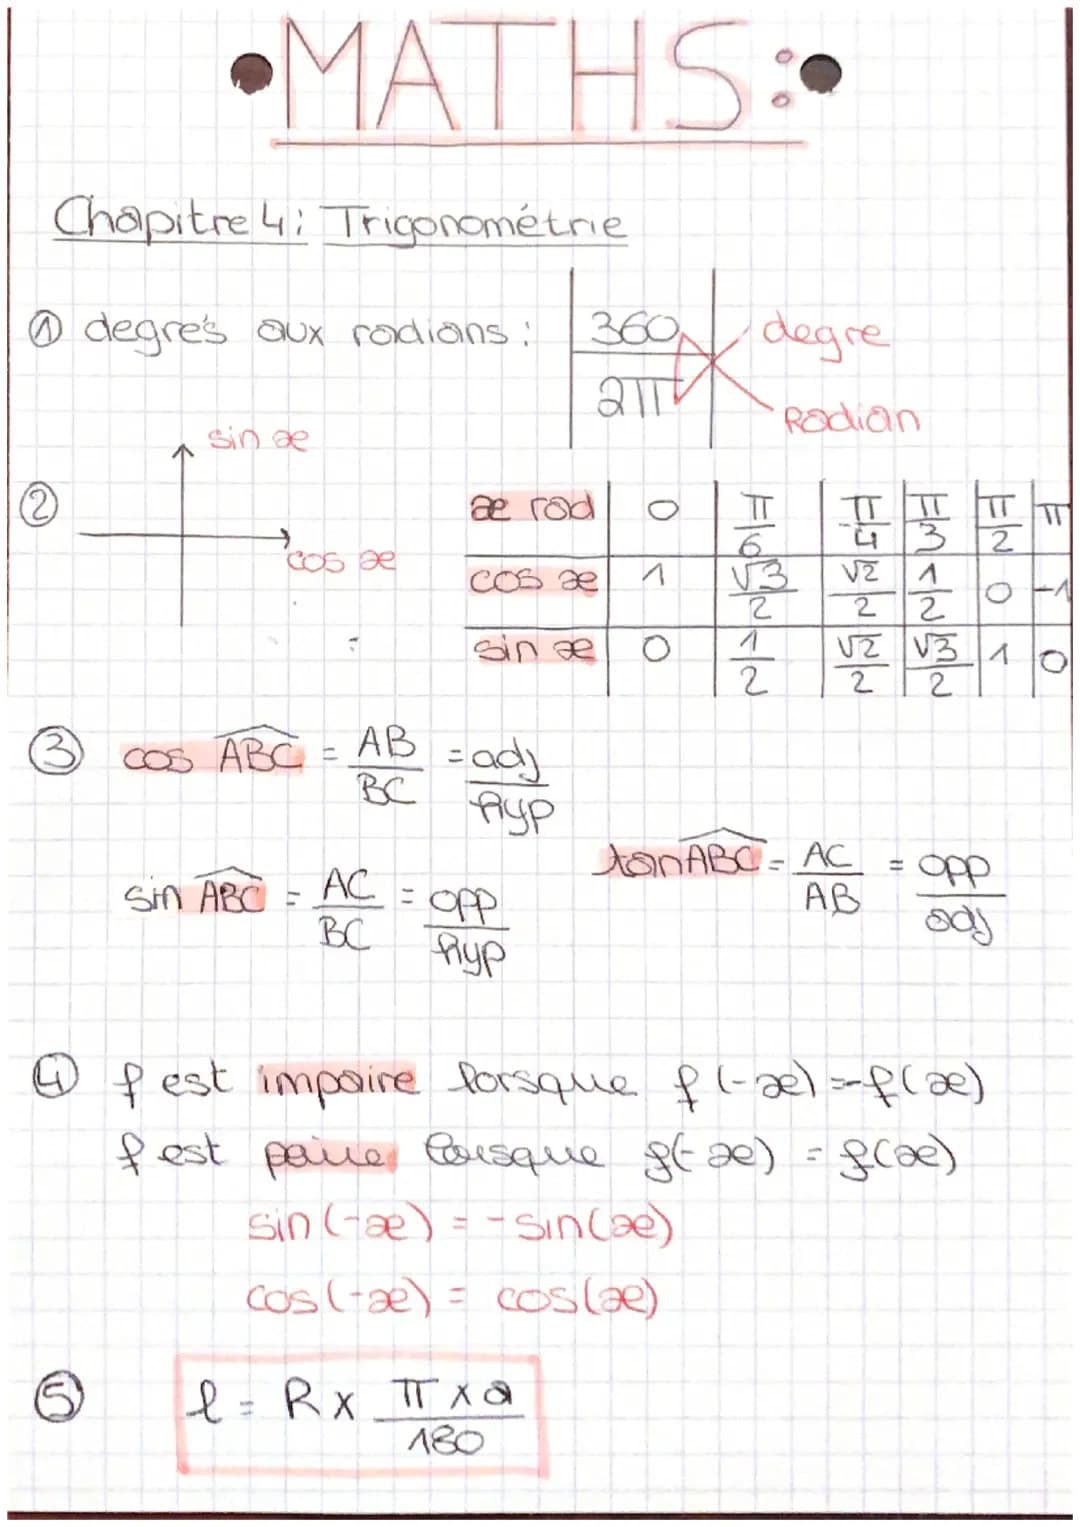 MATHS:
Chapitre 4: Trigonométrie
① degrés aux radians: 360 degre
2π Radian
② sin x
cos x
x rad 0 π/6 π/4 π/3 π/2 π
cos x 1 √3/2 √2/2 1/2 0 -1
sin x 0 1/2 √2/2 √3/2 1 0
③ cos ABC = AB/BC = adj/hyp
tan ABC = AC/AB = opp/adj
sin ABC = AC/BC = opp/hyp
④ f est impaire lorsque f(-x) = -f(x)
f est paire lorsque f(-x) = f(x)
sin(-x) = -sin(x)
cos(-x) = cos(x)
⑤ l = R x π x a/180